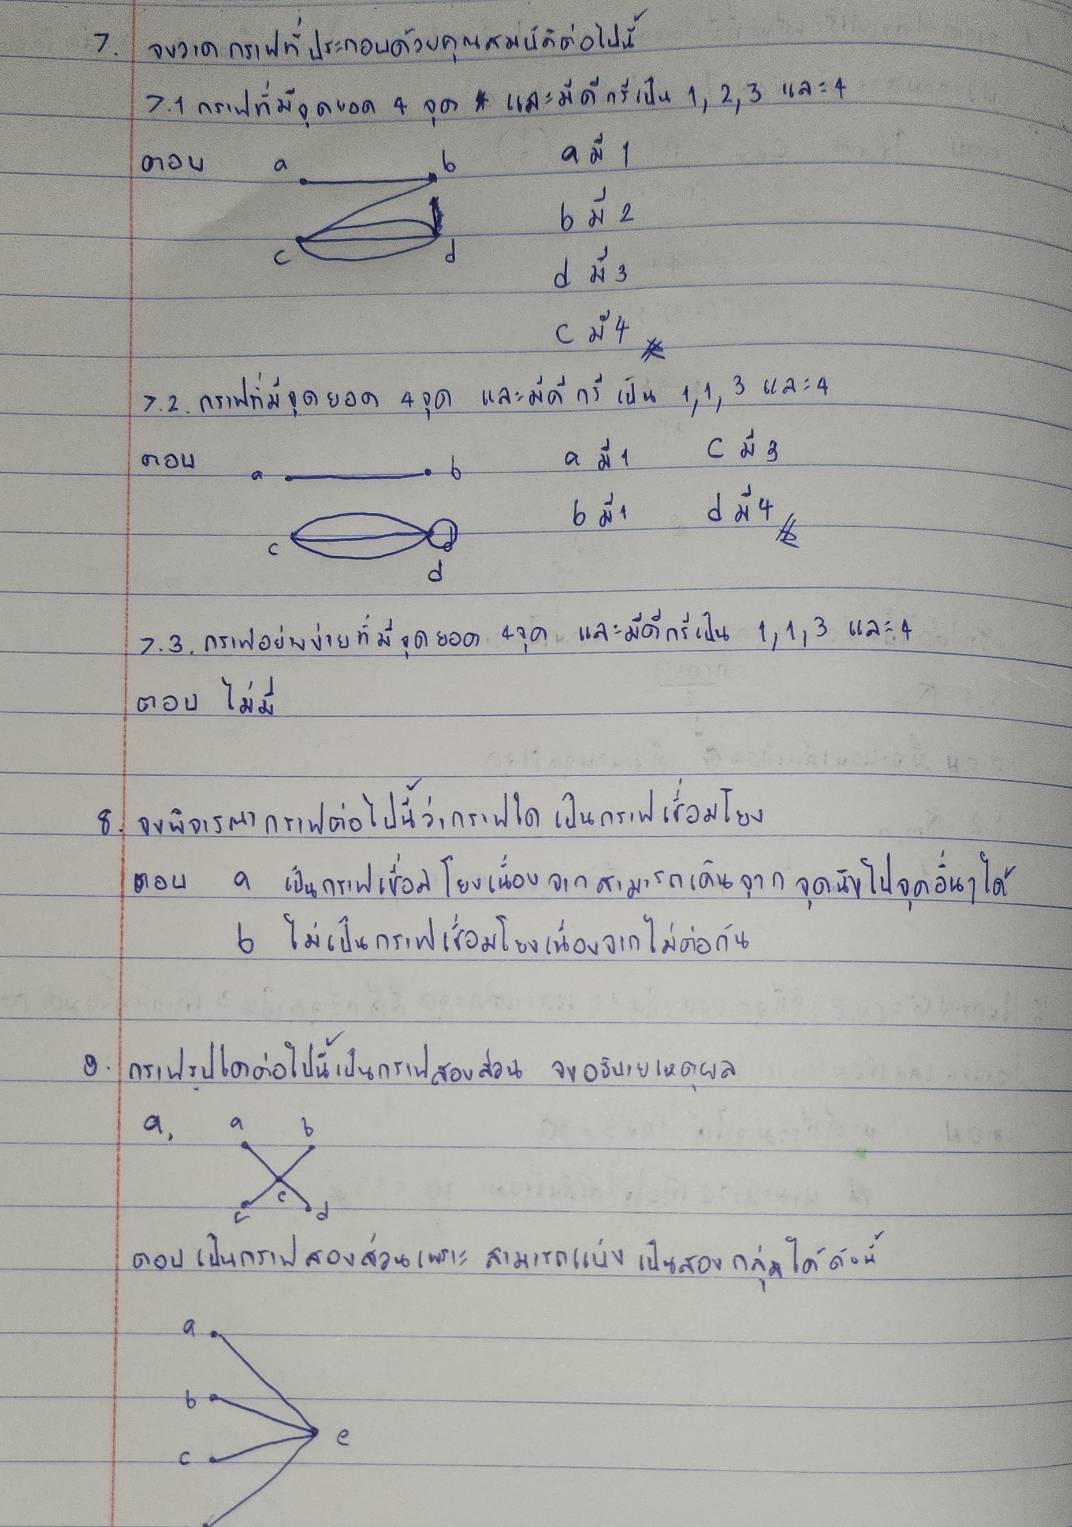 7. จงวาดกราฟที่ประกอบด้วยคุณสมบัติต่อไปนี้
7.1 กราฟที่มีจุดยอด 4 จุด และมีดีกรีเป็น 1, 2, 3 และ 4
ตอบ a b a มี 1
b มี 2
c d d มี 3
c มี 4
7.2. กราฟที่มีจุดยอด 4 จุด และมีดีกรี เป็น 1, 1, 3 และ 4
ตอบ a b a มี 1 c มี 3
b มี 1 d มี 4
c d
7.3. กราฟอย่างง่ายที่มีจุดยอด 4 จุด และมีดีกรีเป็น 1, 1, 3 และ 4
ตอบ ไม่มี
8. จงพิจารณากราฟต่อไปนี้ว่ากราฟใด เป็นกราฟเชื่อมโยง
ตอบ a เป็นกราฟเชื่อมโยงเนื่องจากสามารถเดินจาก จุดนึงไปจุดอื่นๆได้
b ไม่เป็นกราฟเชื่อมโยงเนื่องจากไม่ต่อกัน
9. กราฟรูปใดต่อไปนี้เป็นกราฟสองส่วน จงอธิบายเหตุผล
a, a b
e
c d
ตอบ เป็นกราฟสองส่วนเพราะ สามารถแบ่งเป็นสองกลุ่มได้ ดังนี้
a
b
e
c